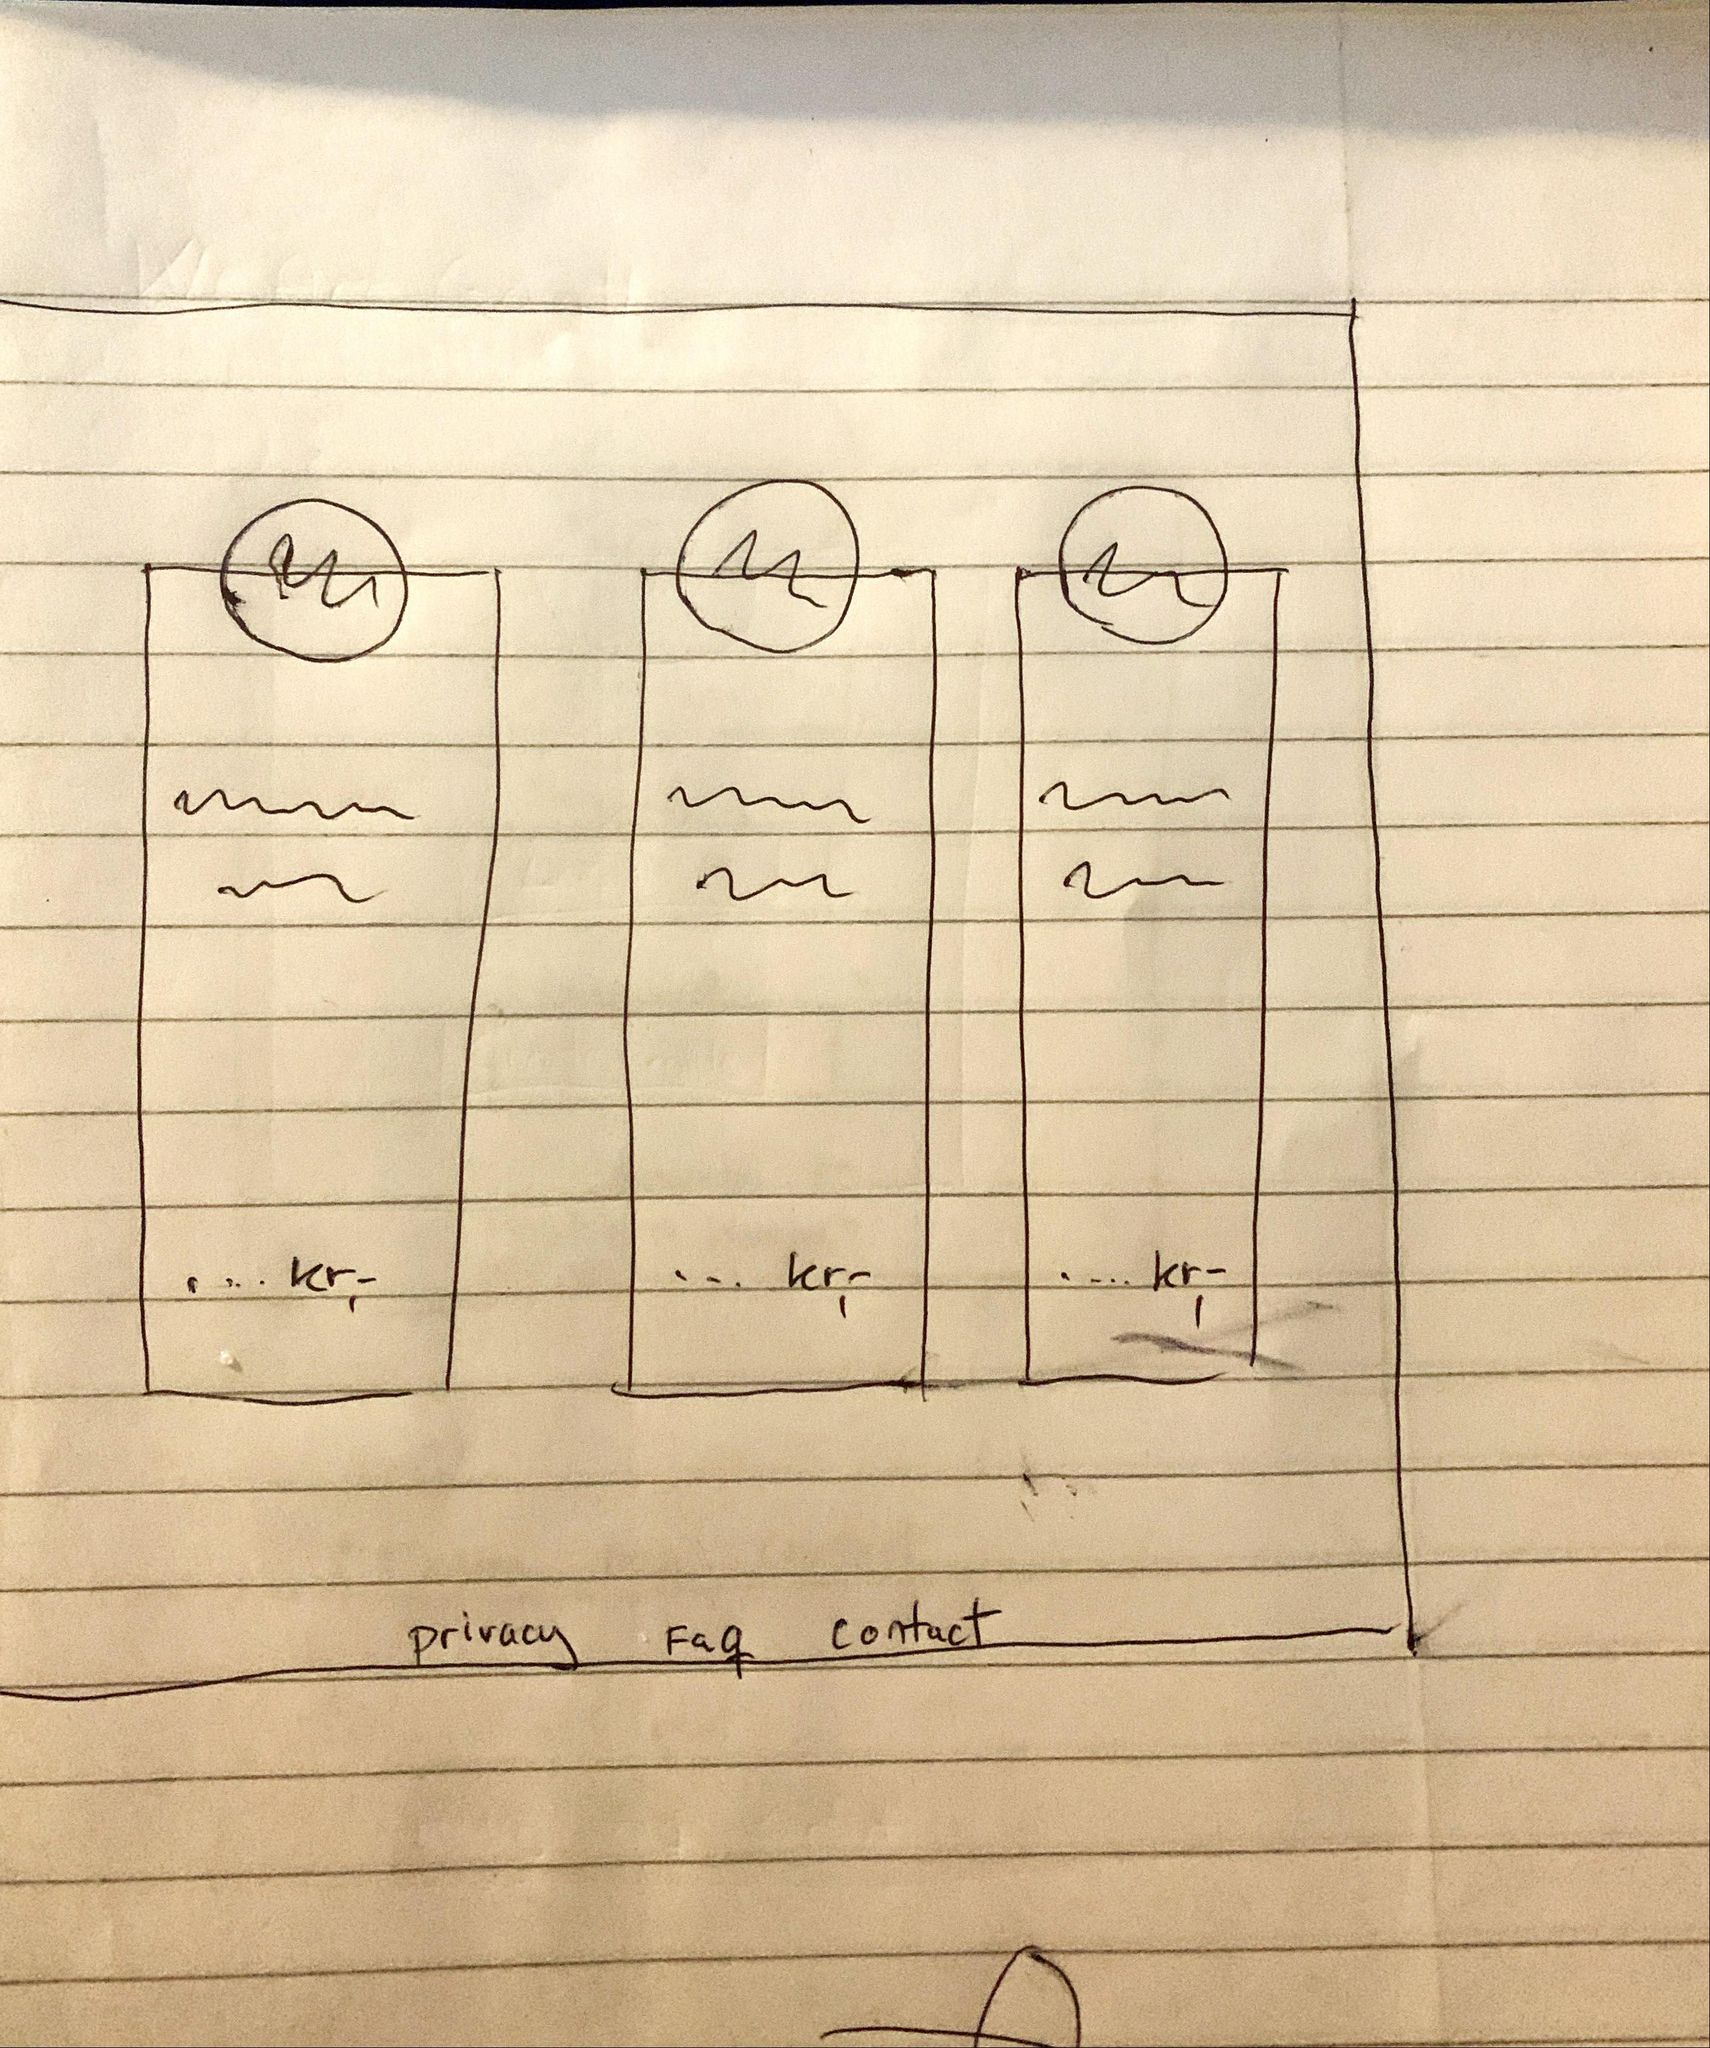 .... kr,- ... kr,- .... kr,-
privacy FaQ contact